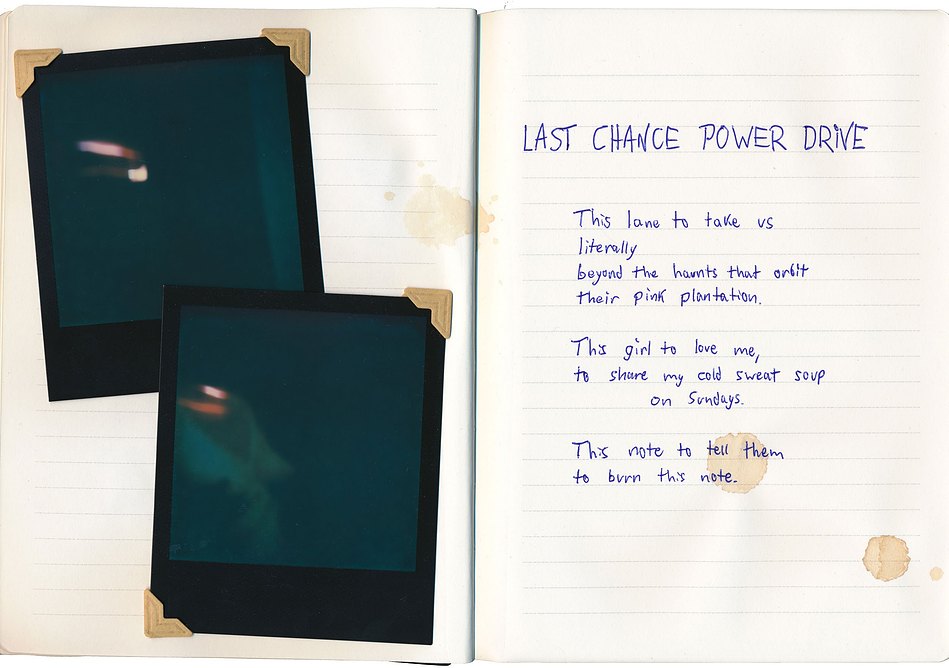 LAST CHANCE POWER DRIVE
This lane to take us
literally
beyond the haunts that orbit
their pink plantation.
This girl to love me,
to share my cold sweat soup
on Sundays.
This note to tell them
to burn this note.